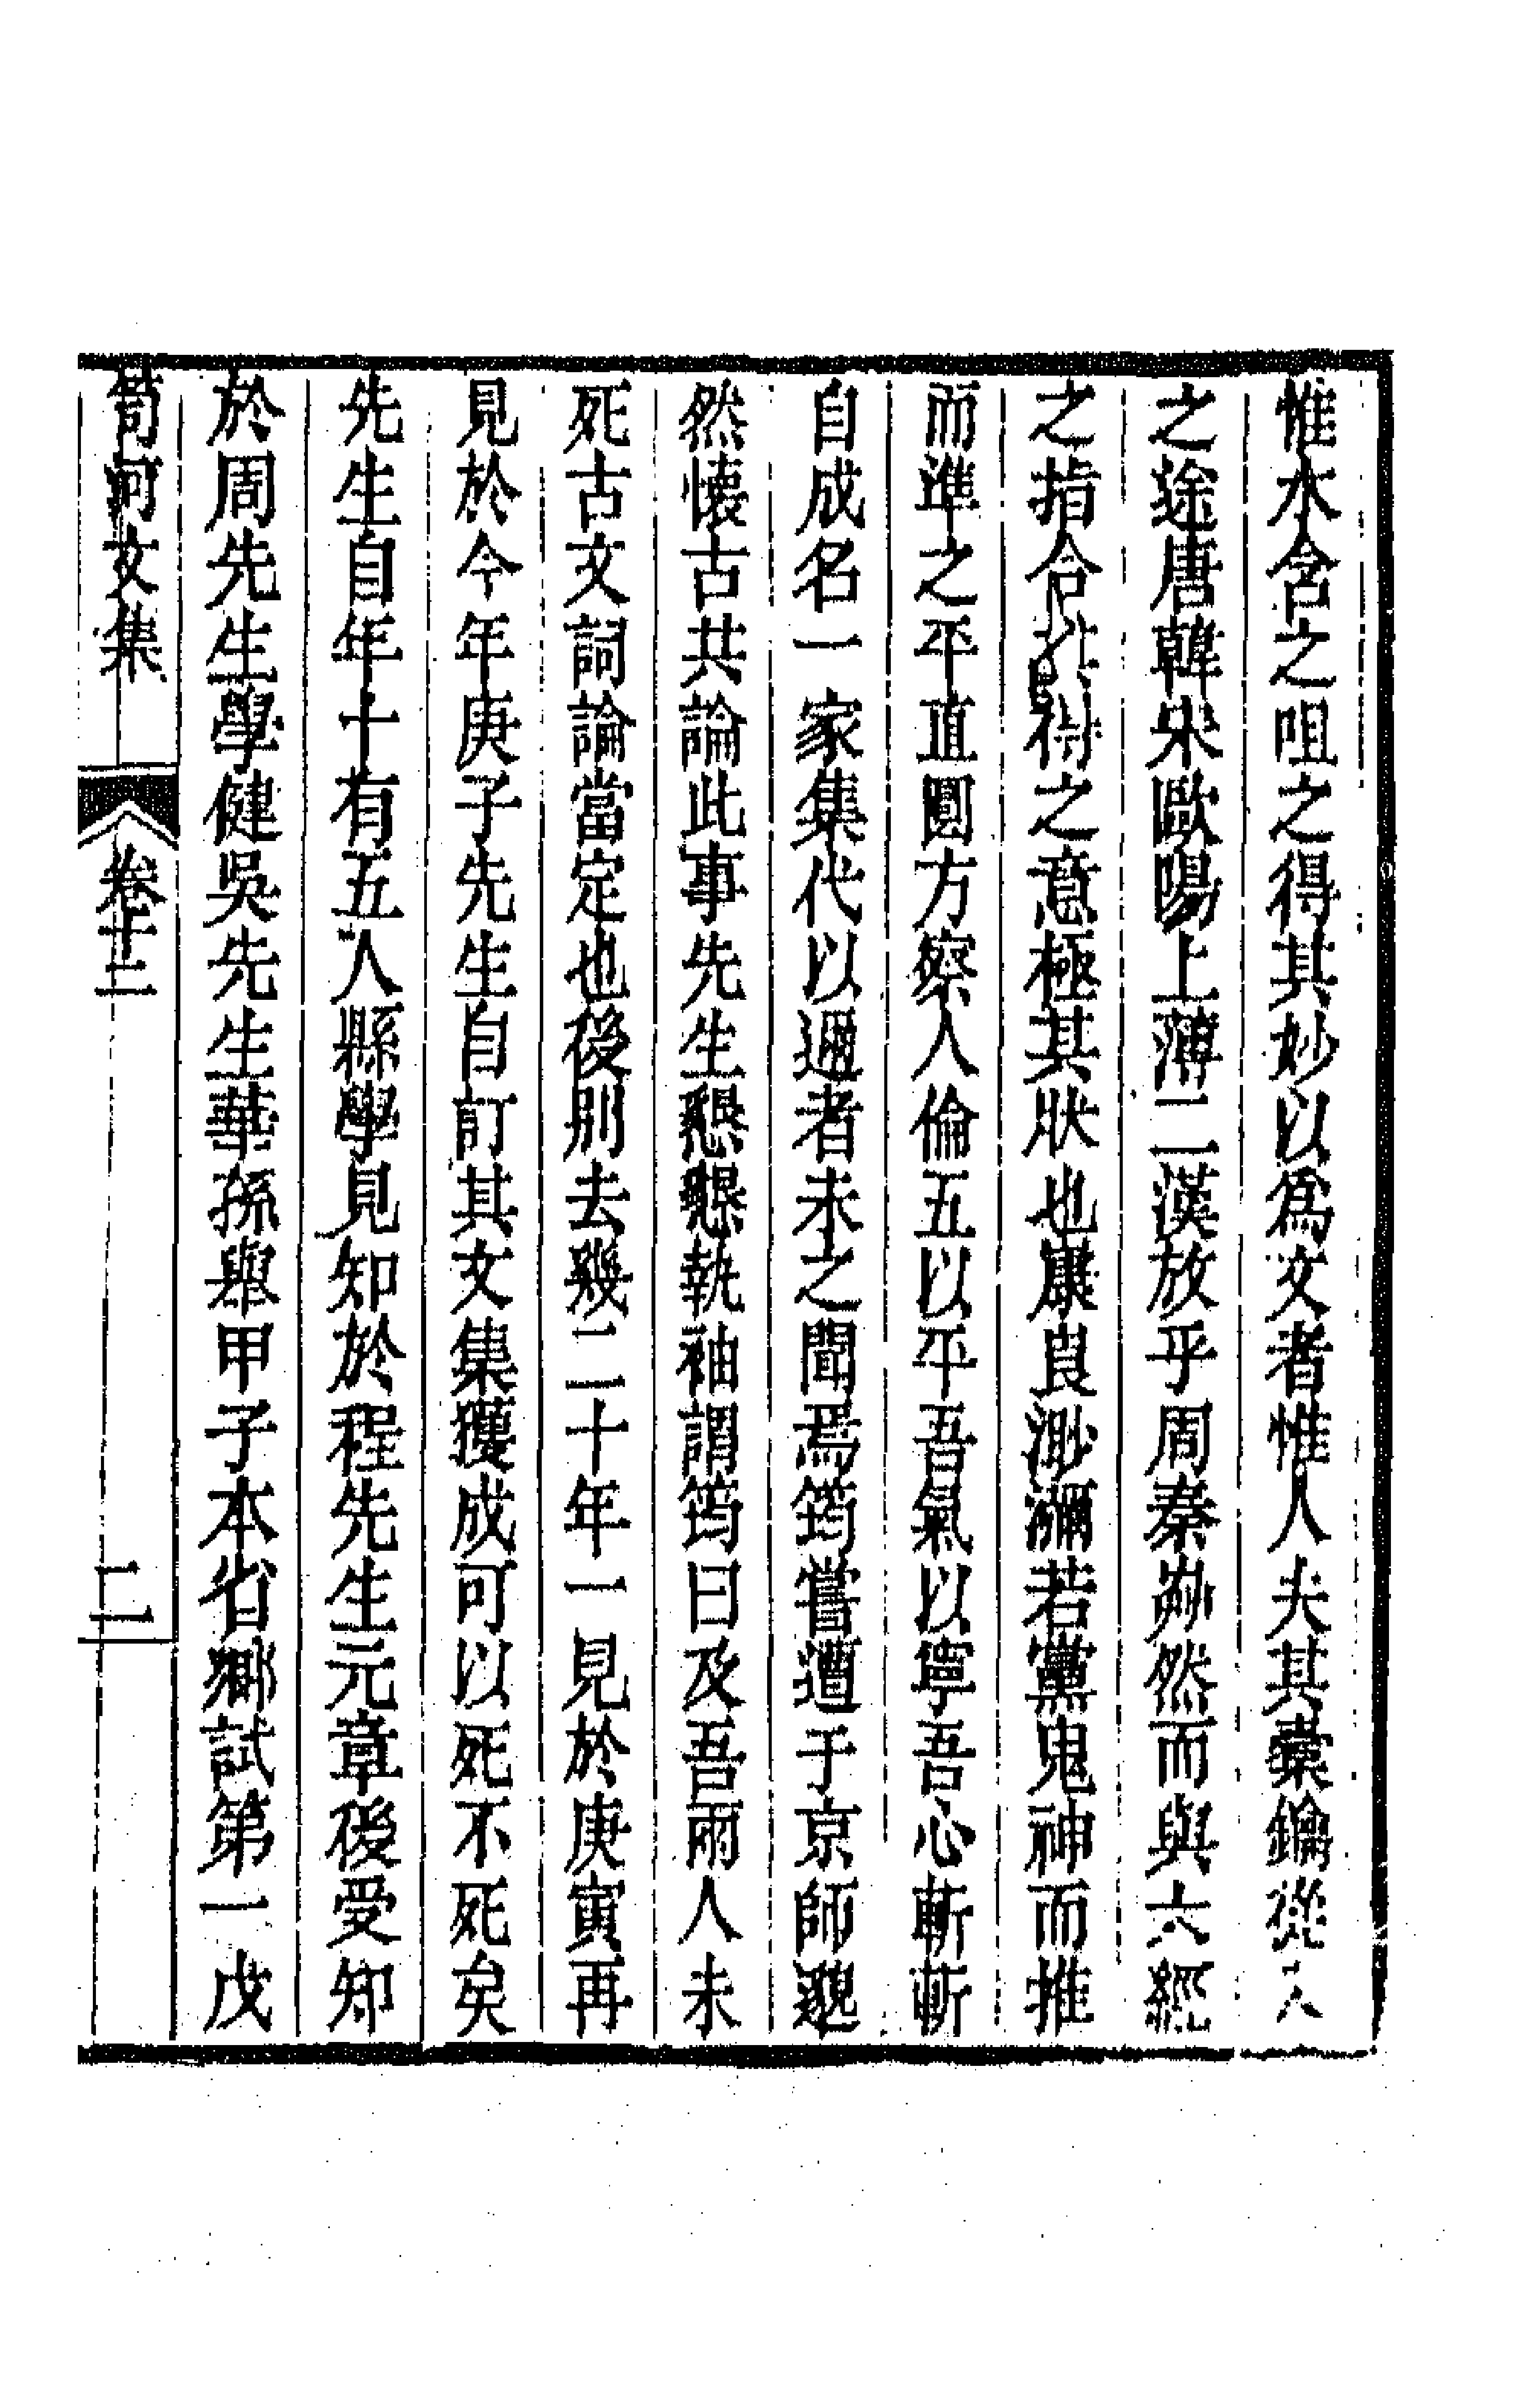 惟水含之咀之得其妙以爲文者惟人夫其橐鑰從人
之途唐韓宋歐陽上薄二漢放乎周秦夐然而與六經
之指合得之意極其狀也康良渺瀰若黨鬼神而推
而準之平直圓方察人倫五以平吾氣以寧吾心斬斬
自成名一家集代以邇者未之聞焉筠嘗遭于京師邈
然懷古共論此事先生懇懇執袖謂筠曰及吾兩人未
死古文詞論當定也後別去幾二十年一見於庚寅再
見於今年庚子先生自訂其文集獲成可以死不死矣
先生自年十有五入縣學見知於程先生元章後受知
於周先生學健吳先生華孫舉甲子本省鄉試第一戊
笥河文集 卷十二 二